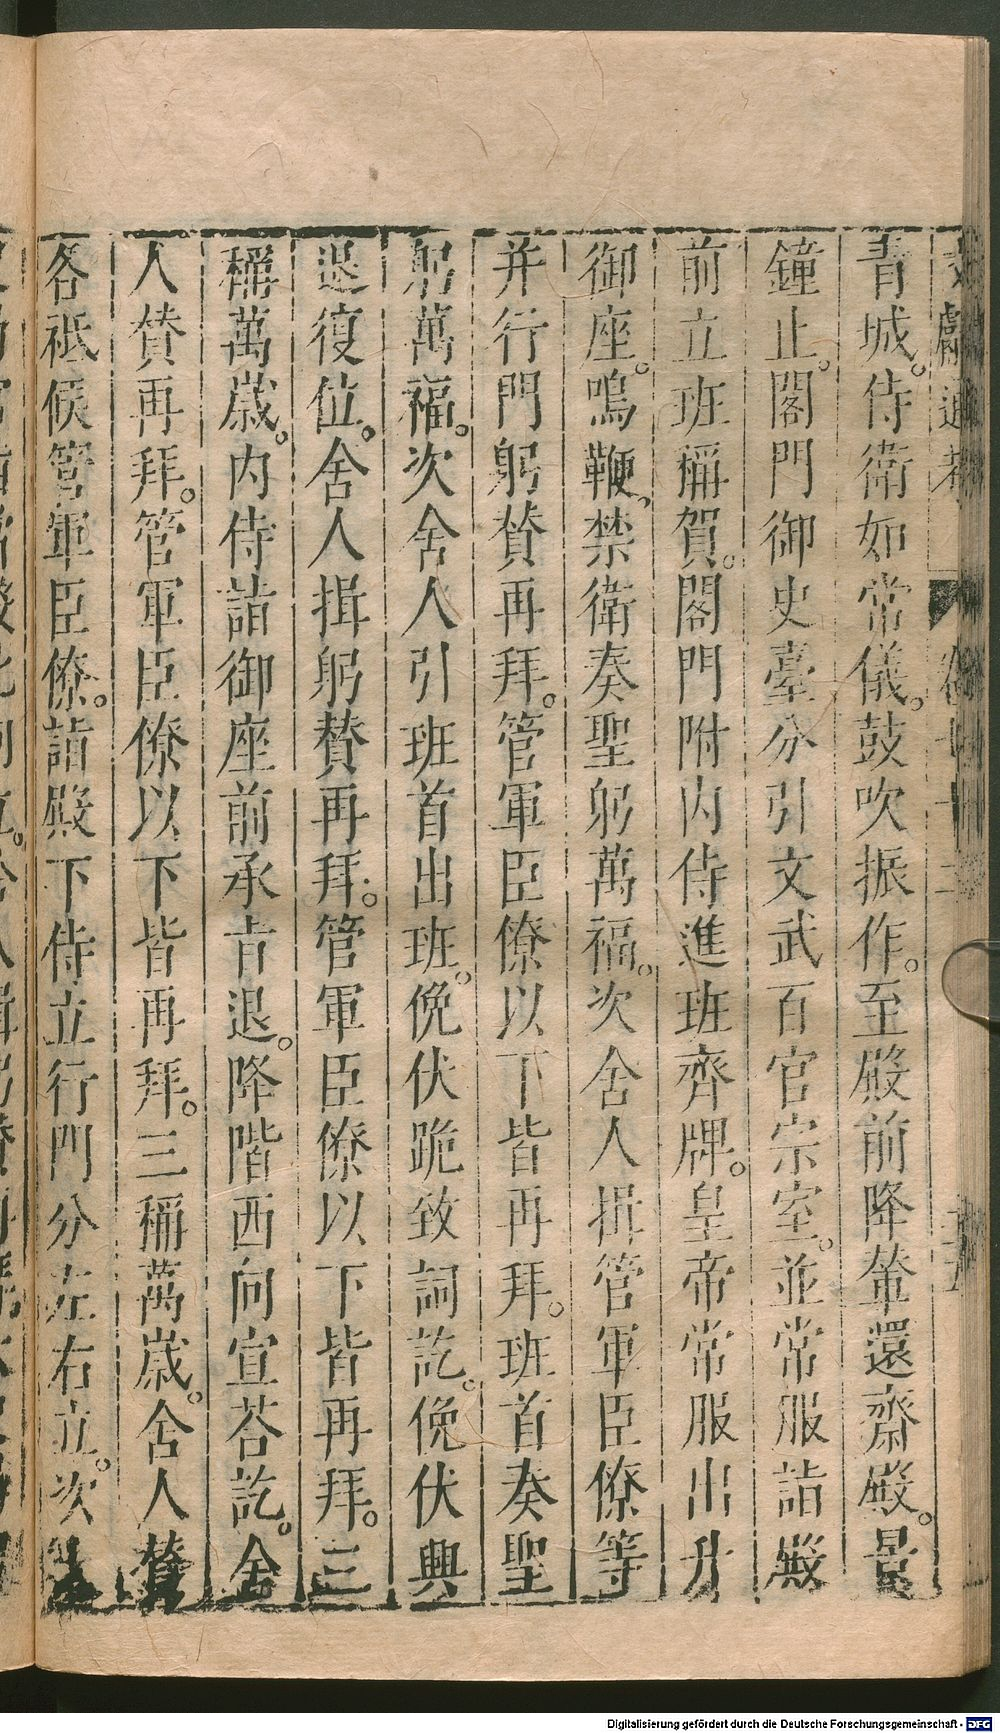 文獻通考 卷七十二
青城。侍衛如常儀。鼓吹振作。至殿前降輦還齋殿。景
鐘止。閤門御史臺分引文武百官宗室。並常服詣殿
前立班稱賀。閤門附内侍進班齊牌。皇帝常服出升
御座。鳴鞭。禁衛奏聖躬萬福。次舍人揖管軍臣僚等
并行門躬贊再拜。管軍臣僚以下皆再拜。班首奏聖
躬萬福。次舍人引班首出班。俛伏跪致詞訖。俛伏興
退復位。舍人揖躬贊再拜。管軍臣僚以下皆再拜。三
稱萬歳。内侍詣御座前承㫖退。降階西向宣荅訖。舍
人贊再拜。管軍臣僚以下皆再拜。三稱萬歳。舍人贊
各祗候管軍臣僚。詣殿下侍立行門分左右立。次
Digitalisierung gefördert durch die Deutsche Forschungsgemeinschaft - DFG